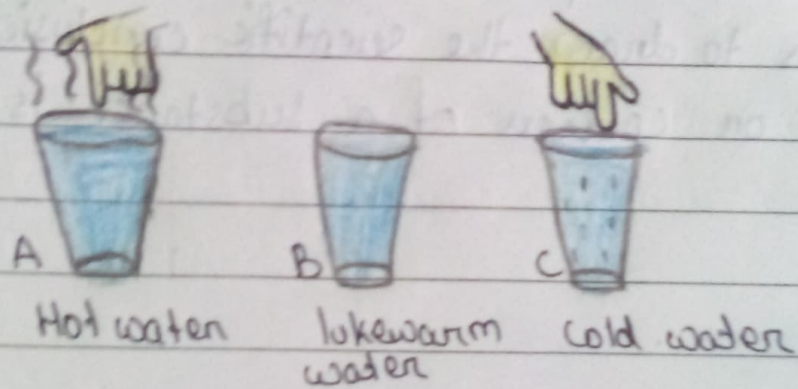 A
B
C
Hot water
lukewarm water
cold water